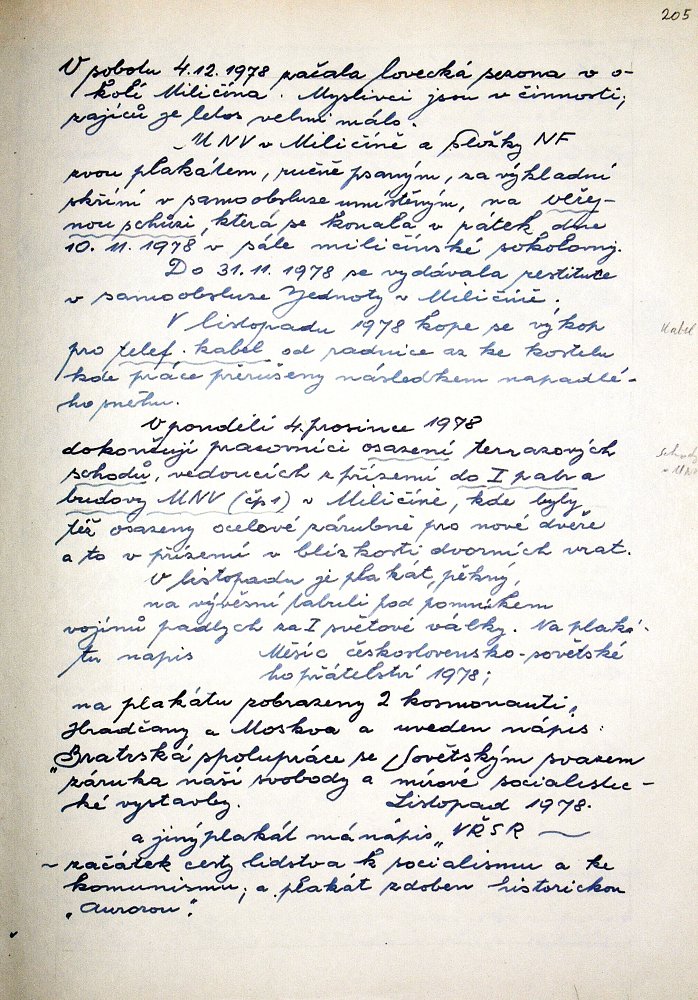 205
V sobotu 4.12.1978 začala lovecká sezona v o-
kolí Miličína. Myslivci jsou v činnosti,
zajíců je letos velmi málo.
MNV v Miličíně a složky NF
zvou plakátem, ručně psaným, za výkladní
skříní v samoobsluze umístěným, na veřej-
nou schůzi, která se konala v pátek dne
10.11.1978 v sále miličínské sokolovny.
Do 31.11.1978 se vydávala restituce
v samoobsluze Jednoty v Miličíně.
V listopadu 1978 kope se výkop
pro telef. kabel od radnice až ke kostelu
kde práce přerušeny následkem napadlé-
ho sněhu.
Kabel
V pondělí 4. prosince 1978
dokončují pracovníci osazení terrazových
schodů, vedoucích z přízemí do I patra
budovy MNV (čp 1) v Miličíně, kde byly
též osazeny ocelové zárubně pro nové dveře
a to v přízemí v blízkosti dvorních vrat.
Schody
v MNV
V listopadu je plakát, pěkný,
na vývěsní tabuli pod pomníkem
vojínů padlých za I světové války. Na plaká-
tu nápis Měsíc československo-sovětské
ho přátelství 1978;
na plakátu zobrazeny 2 kosmonauti,
Hradčany a Moskva a uveden nápis:
"Bratrská spolupráce se Sovětským svazem
záruka naší svobody a mírové socialistic-
ké výstavby. Listopad 1978.
a jiný plakát má nápis "VŘSR —
- začátek cesty lidstva k socialismu a ke
komunismu, a plakát zdoben historickou
"Aurorou".